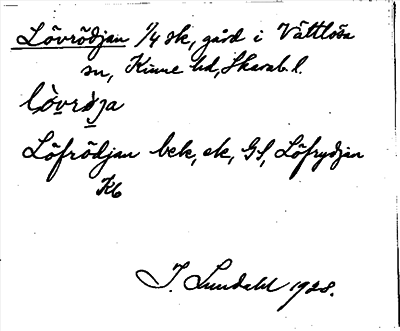 Lövrödjan 1/4 sk, gård i Vättlösa
sn, Kinne hd, Skarab. l.
lòvrö̀ja
Löfrödjan bek, ek, GS, Löfrydjan
Kb
I. Lundahl 1928.